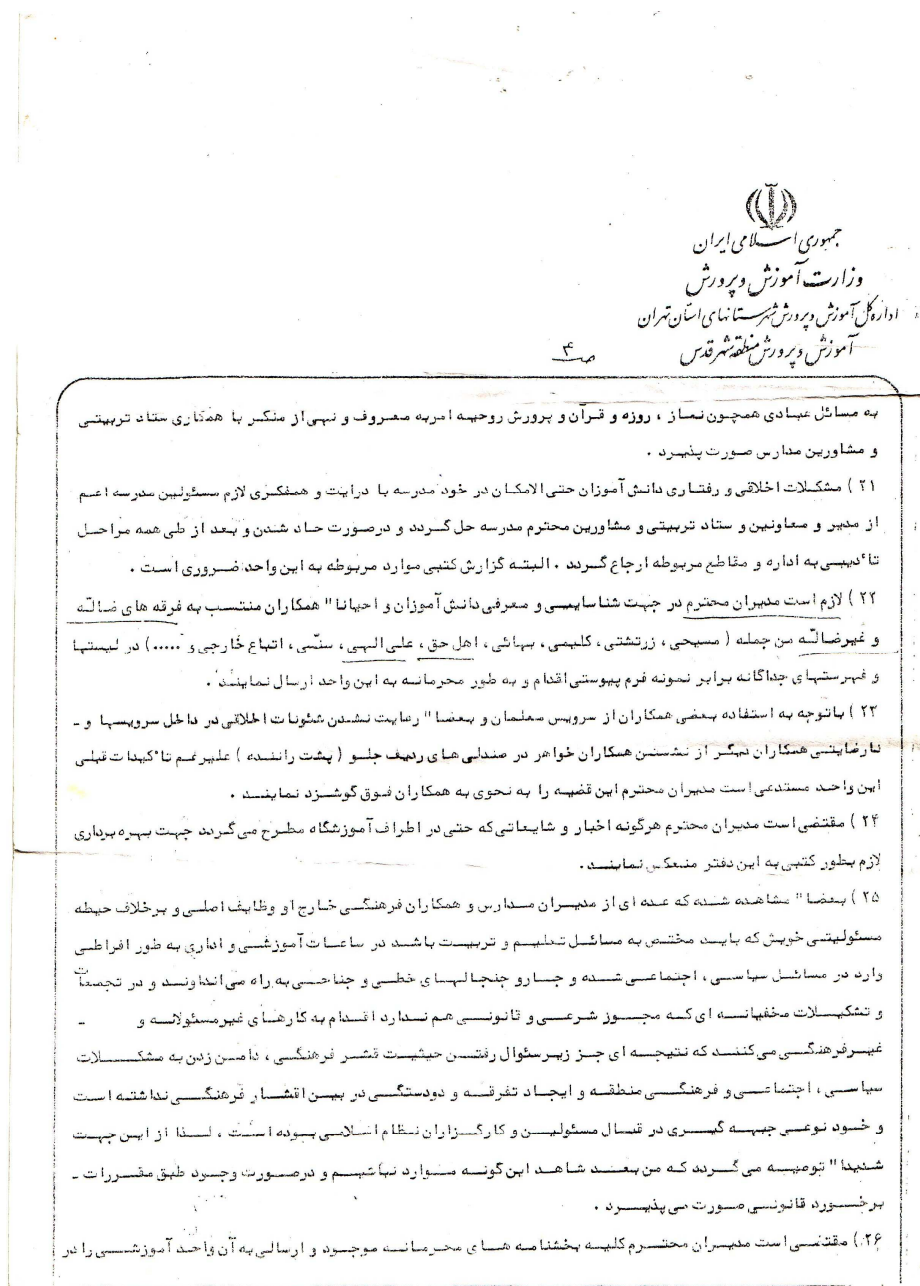 جمهوری اسلامی ایران
وزارت آموزش و پرورش
اداره کل آموزش و پرورش شهرستانهای استان تهران
آموزش و پرورش منطقه شهر قدس
ص ۴
به مسائل عبادی همچون نماز ، روزه و قرآن و پرورش روحیه امربه معروف و نهی از منکر با همکاری ستاد تربیتی
و مشاورین مدارس صورت پذیرد .
۲۱ ) مشکلات اخلاقی و رفتاری دانش آموزان حتی الامکان در خود مدرسه با درایت و همفکری لازم مسئولین مدرسه اعم
از مدیر و معاونین و ستاد تربیتی و مشاورین محترم مدرسه حل گردد و درصورت حاد شدن و بعد از طی همه مراحل
تأدیبی به اداره و مقاطع مربوطه ارجاع گردد . البته گزارش کتبی موارد مربوطه به این واحد ضروری است .
۲۲ ) لازم است مدیران محترم در جهت شناسایی و معرفی دانش آموزان و احیانا" همکاران منتسب به فرقه های ضالّه
و غیرضالّه من جمله ( مسیحی ، زرتشتی ، کلیمی ، بهائی ، اهل حق ، علی الهی ، سنّی ، اتباع خارجی و .....) در لیستها
و فهرستهای جداگانه برابر نمونه فرم پیوستی اقدام و به طور محرمانه به این واحد ارسال نمایند .
۲۳ ) باتوجه به استفاده بعضی همکاران از سرویس معلمان و بعضا" رعایت نشدن شئونات اخلاقی در داخل سرویسها و -
نارضایتی همکاران دیگر از نشستن همکاران خواهر در صندلی های ردیف جلو ( پشت راننده ) علیرغم تأکیدات قبلی
این واحد مستدعی است مدیران محترم این قضیه را به نحوی به همکاران فوق گوشزد نمایند .
۲۴ ) مقتضی است مدیران محترم هرگونه اخبار و شایعاتی که حتی در اطراف آموزشگاه مطرح می گردد جهت بهره برداری
لازم بطور کتبی به این دفتر منعکس نمایند .
۲۵ ) بعضا" مشاهده شده که عده ای از مدیران مدارس و همکاران فرهنگی خارج او وظایف اصلی و برخلاف حیطه
مسئولیتی خویش که باید مختص به مسائل تعلیم و تربیت باشد در ساعات آموزشی و اداری به طور افراطی
وارد در مسائل سیاسی ، اجتماعی شده و جارو جنجالهای خطی و جناحی به راه می اندازند و در تجمعات
و تشکیلات مخفیانه ای که مجوز شرعی و قانونی هم ندارد اقدام به کارهای غیرمسئولانه و -
غیرفرهنگی می کنند که نتیجه ای جز زیر سئوال رفتن حیثیت قشر فرهنگی ، دامن زدن به مشکلات
سیاسی ، اجتماعی و فرهنگی منطقه و ایجاد تفرقه و دودستگی در بین اقشار فرهنگی نداشته است
و خود نوعی جبهه گیری در قبال مسئولین و کارگزاران نظام اسلامی بوده است ، لذا از این جهت
شدیدا" توصیه می گردد که من بعد شاهد این گونه موارد نباشیم و درصورت وجود طبق مقررات -
برخورد قانونی صورت می پذیرد .
۲۶ ) مقتضی است مدیران محترم کلیه بخشنامه های محرمانه موجود و ارسالی به آن واحد آموزشی را در